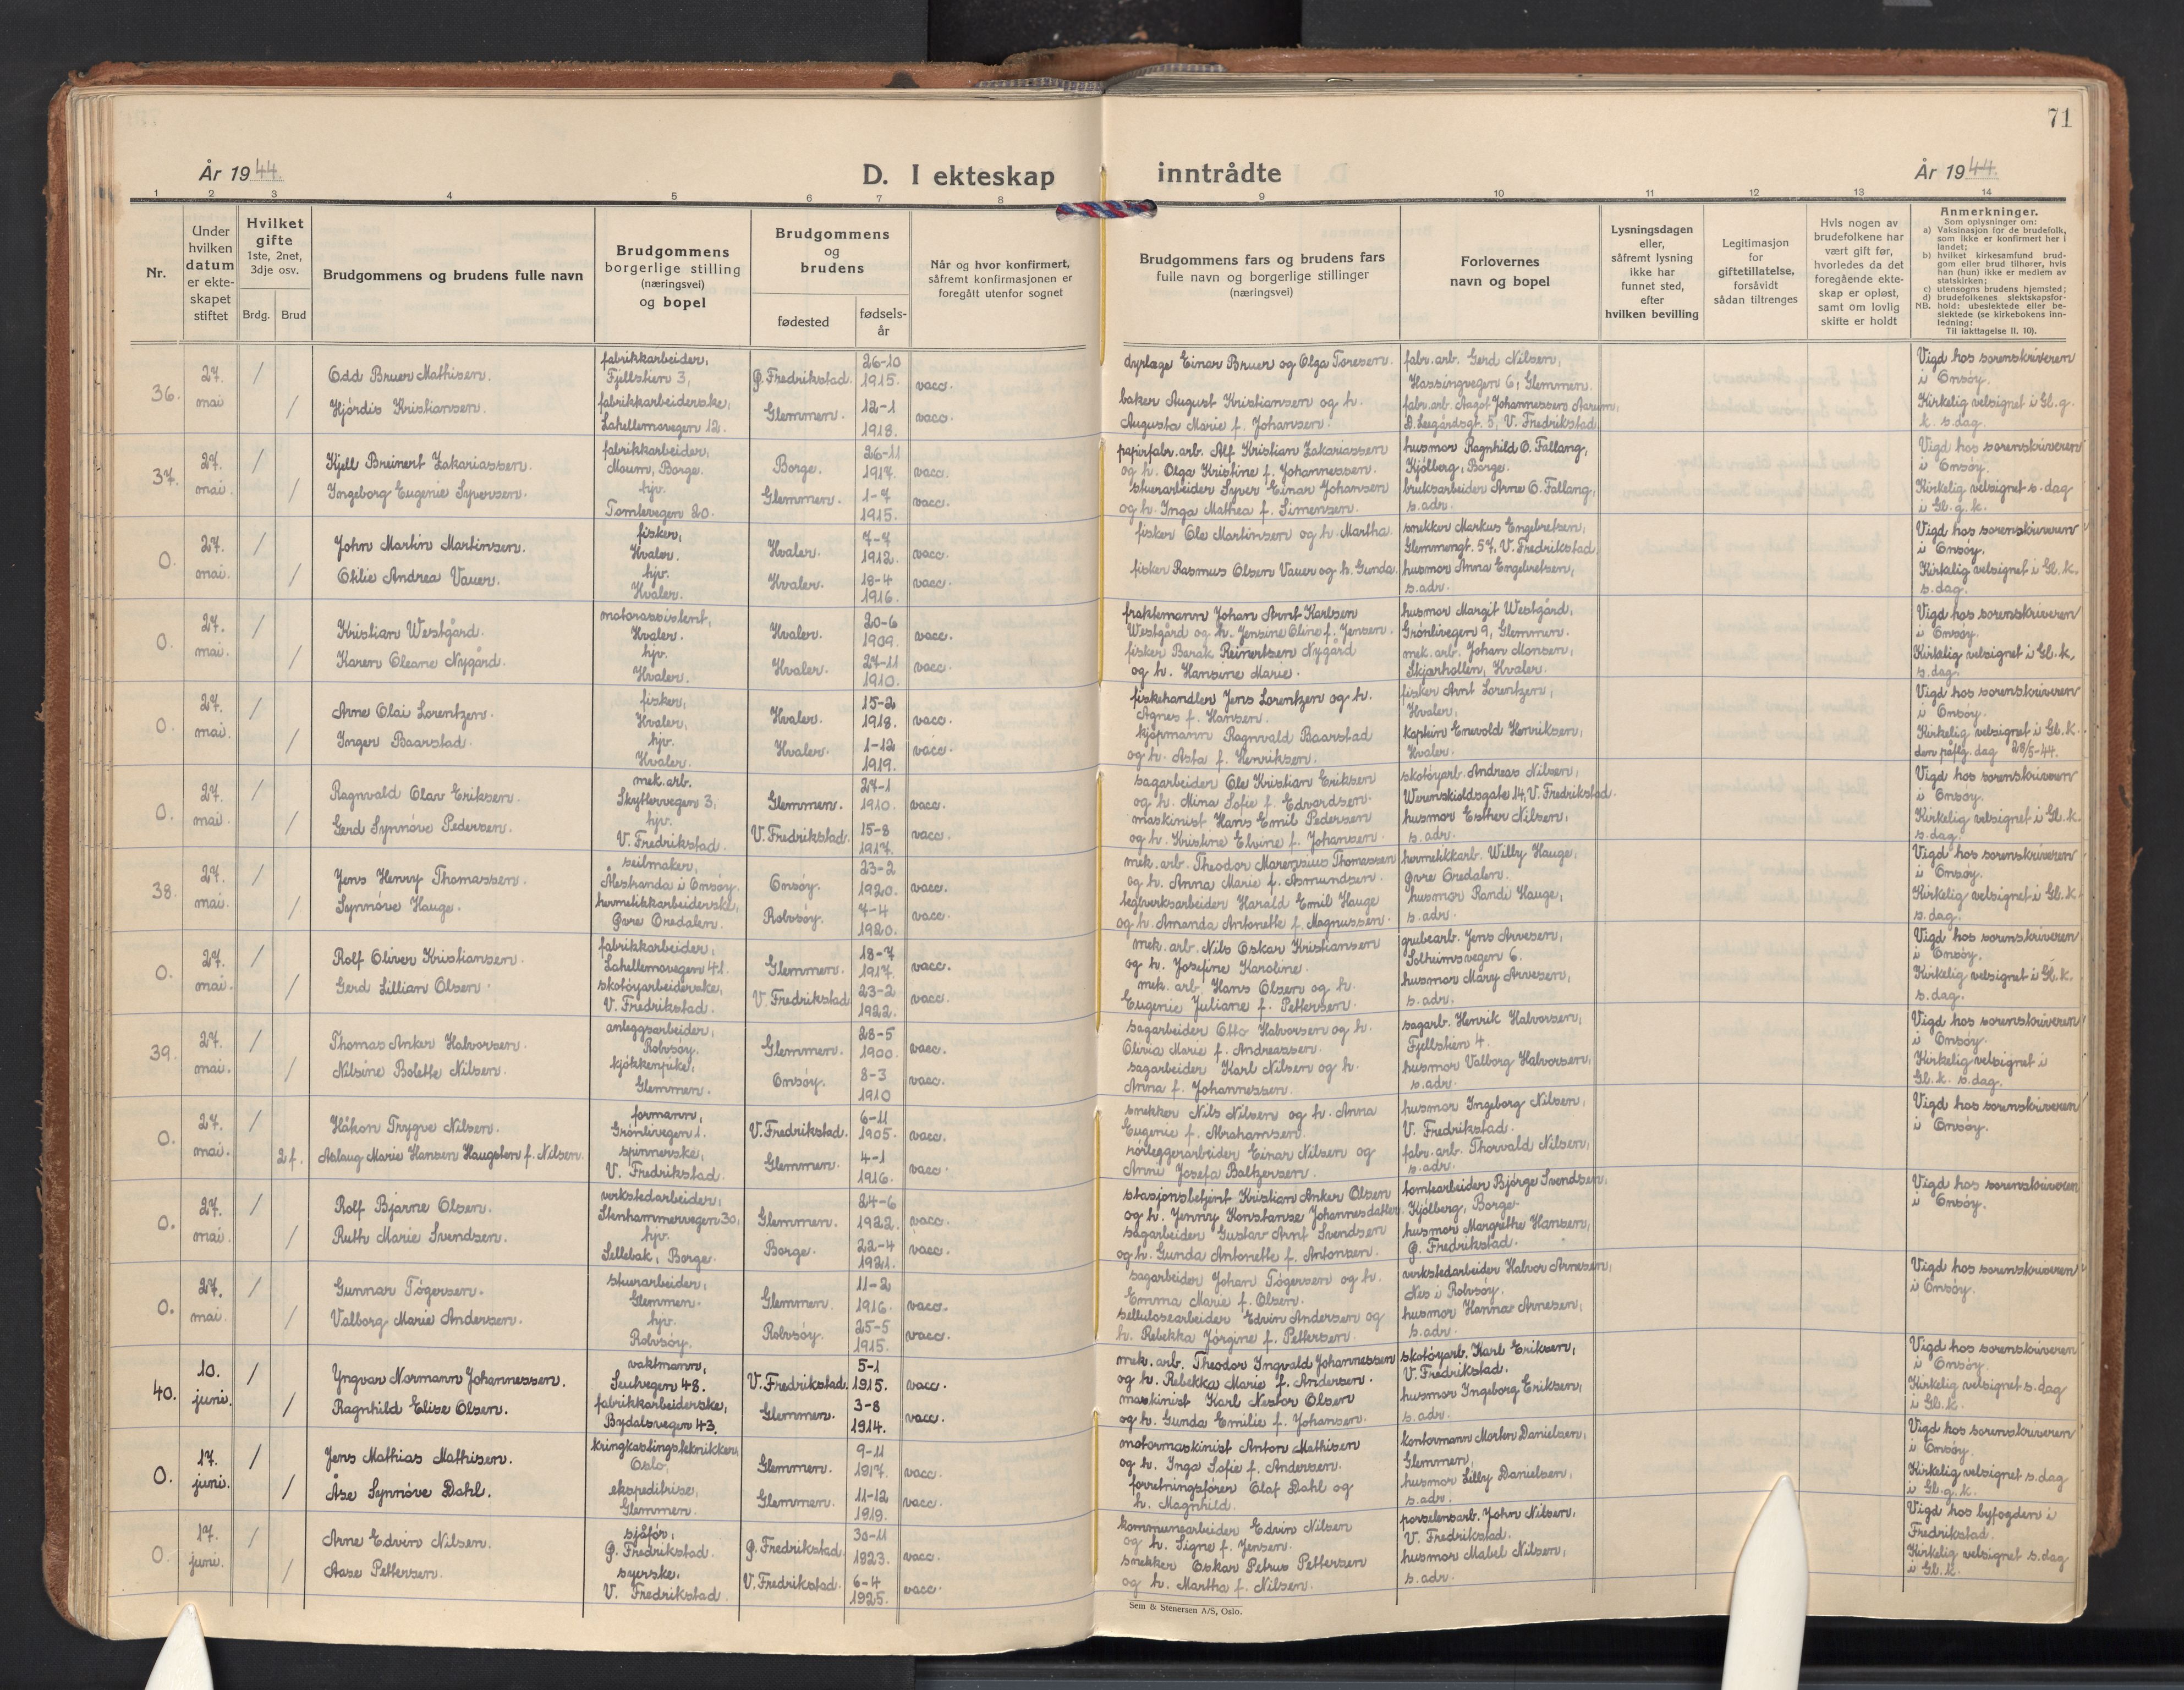 71
År 1944.
D. I ekteskap inntrådte
År 1944.
1 2 3 4 5 6 7 8 9 10 11 12 13 14
Nr.
Under hvilken datum er ekteskapet stiftet
Hvilket gifte
1ste, 2net, 3dje osv.
Brdg. Brud
Brudgommens og brudens fulle navn
Brudgommens borgerlige stilling (næringsvei) og bopel
Brudgommens og brudens
fødested
fødselsår
Når og hvor konfirmert, såfremt konfirmasjonen er foregått utenfor sognet
Brudgommens fars og brudens fars fulle navn og borgerlige stillinger (næringsvei)
Forlovernes navn og bopel
Lysningsdagen eller, såfremt lysning ikke har funnet sted, efter hvilken bevilling
Legitimasjon for giftetillatelse, forsåvidt sådan tiltrenges
Hvis nogen av brudefolkene har vært gift før, hvorledes da det foregående ekteskap er opløst, samt om lovlig skifte er holdt
Anmerkninger.
Som oplysninger om:
a) Vaksinasjon for de brudefolk, som ikke er konfirmert her i landet;
b) hvilket kirkesamfund brudgom eller brud tilhører, hvis han (hun) ikke er medlem av statskirken;
c) utensogns brudens hjemsted;
d) brudefolkenes slektskapsforhold: ubeslektede eller beslektede (se kirkebokens innledning:
NB. Til iakttagelse II. 10).
36. 27. mai / Odd Bruer Mathisen. fabrikkarbeider, Fjellstien 3, Ø. Fredrikstad. 26-10 1915. vacc. dyrlæge Einar Bruer og Olga Toresen. fabr. arb. Gerd Nilsen, Hassingvegen 6, Glemmen. Vigd hos sorenskriveren i Onsøy.
/ Hjördis Kristiansen. fabrikkarbeiderske, Lahellemsvegen 12. Glemmen. 12-1 1918. vacc. baker August Kristiansen og h. Augusta Marie f. Johansen. fabr. arb. Aagot Johannessen Aarum, D. Leegårdsgt. 5, V. Fredrikstad. Kirkelig velsignet i Gl. g. k. s. dag.
37. 27. mai. / Kjell Breinert Zakariassen. fabrikkarbeider, Moum, Borge. Borge. 26-11 1917. vacc. papirfabr. arb. Alf Kristian Zakariassen og h. Olga Kristine f. Johannessen. husmor Ragnhild O. Fallang, Kjölberg, Borge. Vigd hos sorenskriveren i Onsöy.
/ Ingeborg Eugenie Syversen. hjv. Tomtevegen 20. Glemmen. 1-7 1915. vacc. stuerarbeider Syver Einar Johansen og h. Inga Mathea f. Simensen. bruksarbeider Arne O. Fallang, s. adr. Kirkelig velsignet s. dag i Gl. g. k.
0. 27. mai. / John Martin Martinsen. fisker, Hvaler. Hvaler. 7-7 1912. vacc. fisker Ole Martinsen og h. Martha. snekker Markus Engebretsen, Glemmengt. 57, V. Fredrikstad. Vigd hos sorenskriveren i Onsöy.
/ Otilie Andrea Vauer. hjv. Hvaler. Hvaler. 18-4 1916. vacc. fisker Rasmus Olsen Vauer og h. Gunda. husmor Anna Engebretsen, s. adr. Kirkelig velsignet i Gl. k. s. dag.
0. 27. mai. / Kristian Westgård. motorassistent, Hvaler. Hvaler. 20-6 1909. vacc. fraktemann Johan Arnt Karlsen Westgård og h. Jensine Oline f. Jensen. husmor Margit Westgård, Grönlivegen 9, Glemmen. Vigd hos sorenskriveren i Onsöy.
/ Karen Oleane Nygård. hjv. Hvaler. Hvaler. 27-11 1910. vacc. fisker Barak Reinertsen Nygård og h. Hansine Marie. mek. arb. Johan Monsen, Skjærhollen, Hvaler. Kirkelig velsignet i Gl. k. s. dag.
0. 27. mai. / Arne Olai Lorentzen. fisker, Hvaler. Hvaler. 15-2 1918. vacc. fiskehandler Jens Lorentzen og h. Agnes f. Hansen. fisker Arnt Lorentzen, Hvaler. Vigd hos sorenskriveren i Onsöy.
/ Inger Baarstad. hjv. Hvaler. Hvaler. 1-12 1919. vacc. kjöpmann Ragnvald Baarstad og h. Asta f. Henriksen. kaptein Enevold Henriksen, Hvaler. Kirkelig velsignet i Gl. k. den påflg. dag 28/5-44.
0. 27. mai. / Ragnvald Olav Eriksen. mek. arb. Skyttervegen 3, Glemmen. 27-1 1910. vacc. sagarbeider Ole Kristian Eriksen og h. Mina Sofie f. Edvardsen. skotöyarb. Andreas Nilsen, Werenskioldsgate 14, V. Fredrikstad. Vigd hos sorenskriveren i Onsöy.
/ Gerd Synnöve Pedersen. hjv. V. Fredrikstad. V. Fredrikstad. 15-8 1917. vacc. maskinist Hans Emil Pedersen og h. Kristine Elvine f. Johansen. husmor Esther Nilsen, s. adr. Kirkelig velsignet i Gl. k. s. dag.
38. 27. mai. / Jens Henry Thomassen. seilmaker, Ålestranda i Onsöy. Onsöy. 23-2 1920. vacc. mek. arb. Theodor Marensius Thomassen og h. Anna Marie f. Asmundsen. hermetikkarb. Willy Hauge, Øvre Oredalen. Vigd hos sorenskriveren i Onsöy.
/ Synnöve Hauge. hermetikkarbeiderske, Øvre Oredalen. Rolvsöy. 7-4 1920. vacc. teglverksarbeider Harald Emil Hauge og h. Amanda Antonette f. Magnussen. husmor Randi Hauge, s. adr. Kirkelig velsignet i Gl. k. s. dag.
0. 27. mai. / Rolf Oliver Kristiansen. fabrikkarbeider, Lahellemsvegen 41. Glemmen. 18-7 1917. vacc. mek. arb. Nils Oskar Kristiansen og h. Josefine Karoline. grubearb. Jens Arvesen, Solheimsvegen 6. Vigd hos sorenskriveren i Onsöy.
/ Gerd Lillian Olsen. skotöyarbeiderske, V. Fredrikstad. V. Fredrikstad. 23-2 1922. vacc. mek. arb. Hans Olsen og h. Eugenie Juliane f. Pettersen. husmor Mary Arvesen, s. adr. Kirkelig velsignet i Gl. k. s. dag.
39. 27. mai. / Thomas Anker Halvorsen. anleggsarbeider, Rolvsöy. Glemmen. 28-5 1900. vacc. sagarbeider Otto Halvorsen og h. Olivia Marie f. Andreassen. sagarb. Henrik Halvorsen, Fjellstien 4. Vigd hos sorenskriveren i Onsöy.
/ Nilsine Bolette Nilsen. kjökkenpike, Glemmen. Onsöy. 8-3 1910 vacc. sagarbeider Karl Nilsen og h. Anna f. Johannessen. husmor Valborg Halvorsen, s. adr. Kirkelig velsignet i Gl. k. s. dag.
0. 27. mai. / Håkon Trygve Nilsen. formann, Grönlivegen 1. V. Fredrikstad. 6-11 1905. vacc. snekker Nils Nilsen og h. Anna Eugenie f. Abrahamsen. husmor Ingeborg Nilsen, V. Fredrikstad. Vigd hos sorenskriveren i Onsöy.
2 f. Aslaug Marie Hansen Haugsten f. Nilsen. spinnerske, V. Fredrikstad. Glemmen. 4-1 1916. vacc. rörleggerarbeider Einar Nilsen og Anni Josefa Baltzersen. fabr. arb. Thorvald Nilsen, s. adr.
0. 27. mai. / Rolf Bjarne Olsen. verkstedarbeider, Stenhammervegen 30, Glemmen. 24-6 1922. vacc. stasjonsbetjent Kristian Anker Olsen og h. Jenny Konstanse Johannesdatter. tomtearbeider Björge Svendsen, Kjölberg, Borge. Vigd hos sorenskriveren i Onsöy.
/ Ruth Marie Svendsen. hjv. Sellebak, Borge. Borge. 22-4 1921. vacc. sagarbeider Gustav Arnt Svendsen og h. Gunda Antonette f. Antonsen. husmor Margrethe Hansen, Ø. Fredrikstad.
0. 27. mai. / Gunnar Tögersen. stuerarbeider, Glemmen. Glemmen. 11-2 1916. vacc. sagarbeider Johan Tögersen og h. Emma Marie f. Olsen. verkstedarbeider Halvor Arnesen, Nes i Rolvsöy. Vigd hos sorenskriveren i Onsöy.
/ Valborg Marie Andersen. hjv. Rolvsöy. Rolvsöy. 25-5 1915. vacc. sellulosearbeider Edvin Andersen og h. Rebekka Jörgine f. Pettersen. husmor Hanna Arnesen, s. adr.
40. 10. juni. / Yngvar Normann Johannessen. vaktmann, Seutvegen 48. V. Fredrikstad. 5-1 1915. vacc. mek. arb. Theodor Ingvald Johannessen og h. Rebekka Marie f. Andersen. skotöyarb. Karl Eriksen, V. Fredrikstad. Vigd hos sorenskriveren i Onsöy.
/ Ragnhild Elise Olsen. fabrikkarbeiderske, Bydalsvegen 43. Glemmen. 3-8 1914. vacc. maskinist Karl Nestor Olsen og h. Gunda Emilie f. Johansen. husmor Ingeborg Eriksen, s. adr. Kirkelig velsignet s. dag i Gl. k.
0. 17. juni. / Jens Mathias Mathisen. kringkastingstekniker, Oslo. Glemmen. 9-11 1917. vacc. motormaskinist Anton Mathisen og h. Inga Sofie f. Andersen. kontormann Morten Danielsen, Glemmen, Vigd hos sorenskriveren i Onsöy.
/ Åse Synnöve Dahl. ekspeditrise, Glemmen. Glemmen. 11-12 1919. vacc. forretningsförer Olaf Dahl og h. Magnhild. husmor Lilly Danielsen, s. adr. Kirkelig velsignet s. dag i Gl. g. k.
0. 17. juni. / Arne Edvin Nilsen. sjåför, Ø. Fredrikstad. Ø. Fredrikstad. 30-11 1923. vacc. kommunearbeider Edvin Nilsen og h. Signe f. Jensen. porselensarb. John Nilsen, V. Fredrikstad. Vigd hos byfogden i Fredrikstad.
/ Aase Pettersen. syerske, V. Fredrikstad. V. Fredrikstad. 6-4 1925. vacc. snekker Oskar Petrus Pettersen og h. Martha f. Nilsen. husmor Mabel Nilsen, s. adr. Kirkelig velsignet s. dag i Gl. k.
Sem & Stenersen A/S, Oslo.